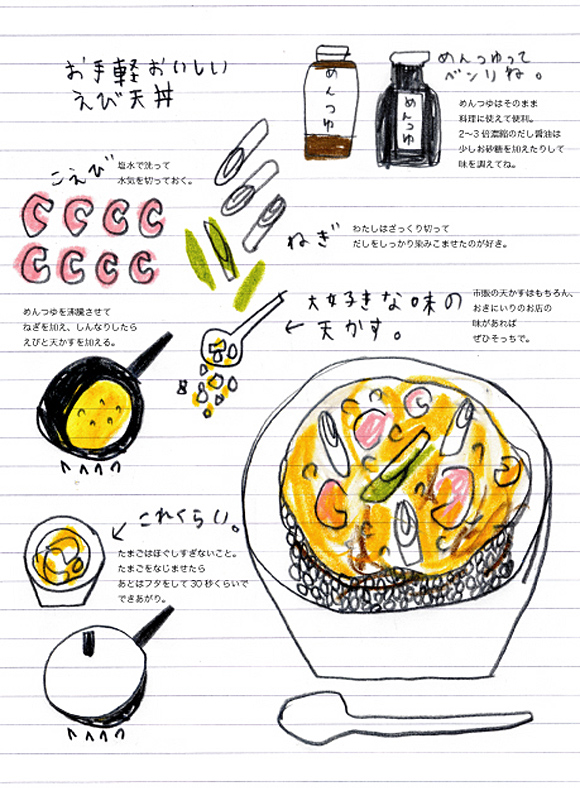 お手軽おいしい
えび天丼
めんつゆ
めんつゆ
めんつゆって
ベンリね。
めんつゆはそのまま
料理に使えて便利。
2〜3倍濃縮のだし醤油は
少しお砂糖を加えたりして
味を調えてね。
こえび
塩水で洗って
水気を切っておく。
ねぎ
わたしはざっくり切って
だしをしっかり染みこませたのが好き。
大好きな味の
天かす。
市販の天かすはもちろん、
おきにいりのお店の
味があれば
ぜひそっちで。
めんつゆを沸騰させて
ねぎを加え、しんなりしたら
えびと天かすを加える。
これくらい。
たまごはほぐしすぎないこと。
たまごをなじませたら
あとはフタをして30秒くらいで
できあがり。